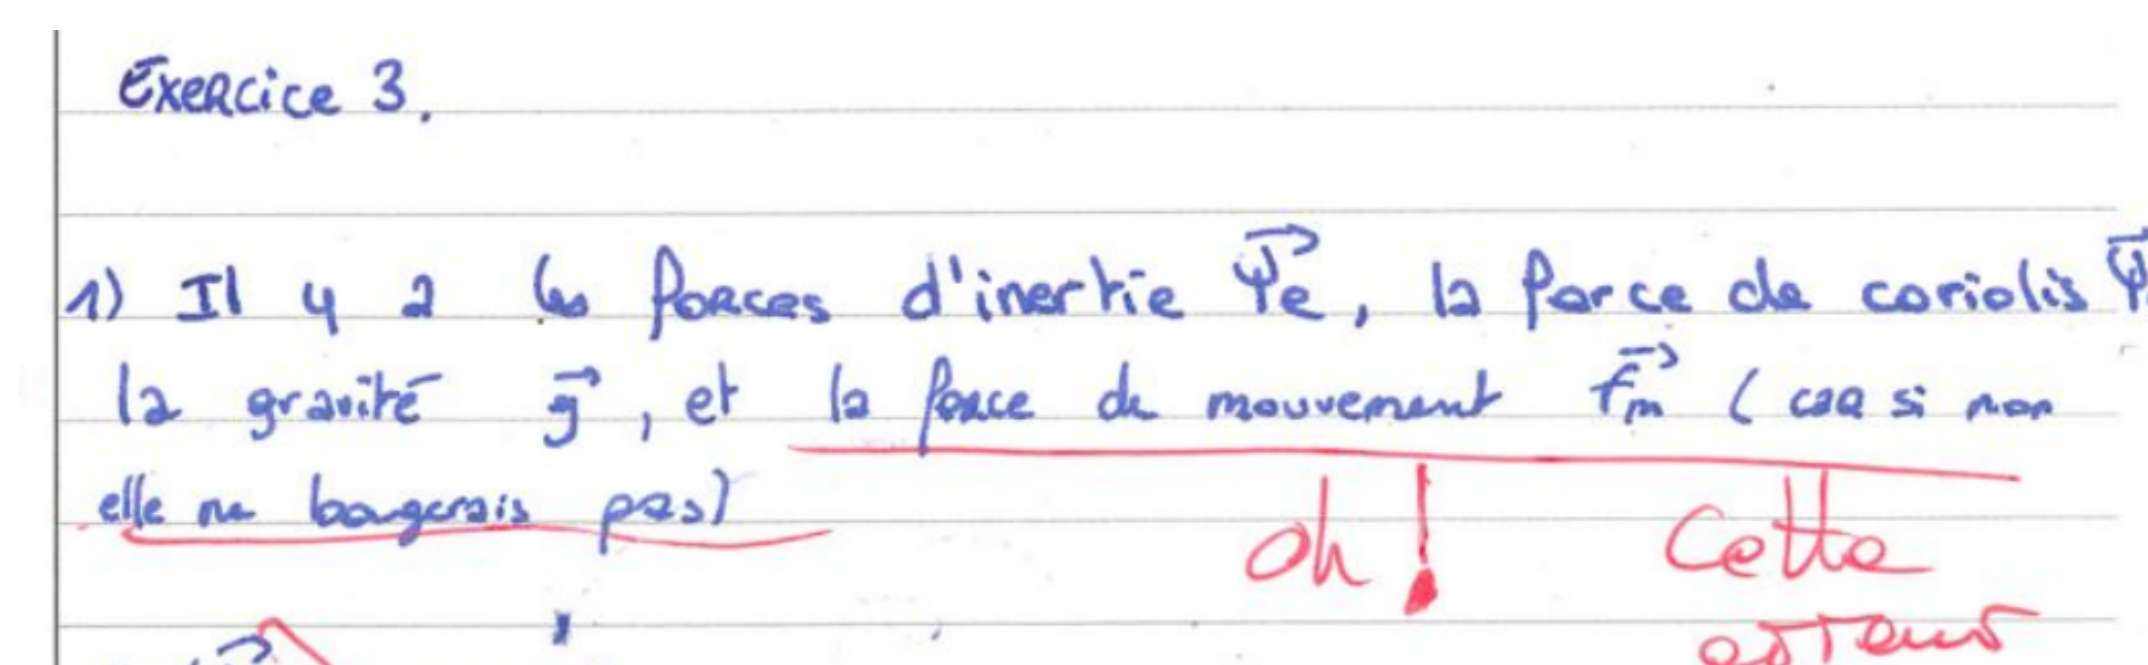 Exercice 3.
1) Il y a les forces d'inertie Ψe, la force de coriolis Ψ
la gravité g, et la force de mouvement Fm (car si non
elle ne bougerais pas)
oh! Cette
erreur